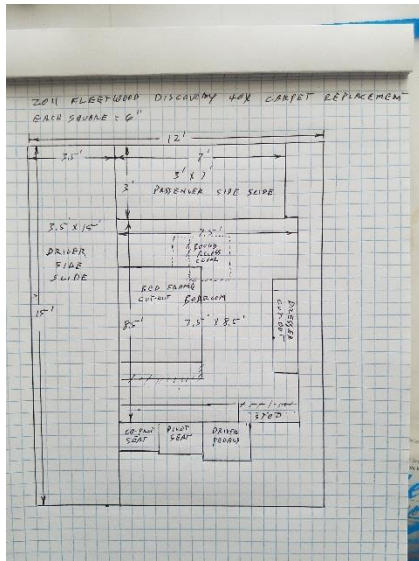 2011 FLEETWOOD DISCOVERY 40X CARPET REPLACEMENT
EACH SQUARE = 6"
12'
3.5'
7'
3' X 7'
3'
PASSENGER SIDE SLIDE
3.5' X 15'
7.5'
DRIVER
SIDE
SLIDE
ROUND
ACCESS
COVER
BED FRAME
CUT-OUT
BEDROOM
DRESSER
CUT-OUT
15'
8.5'
7.5' X 8.5'
STEP
CO-PILOT
SEAT
PILOT
SEAT
DRIVER
PEDALS